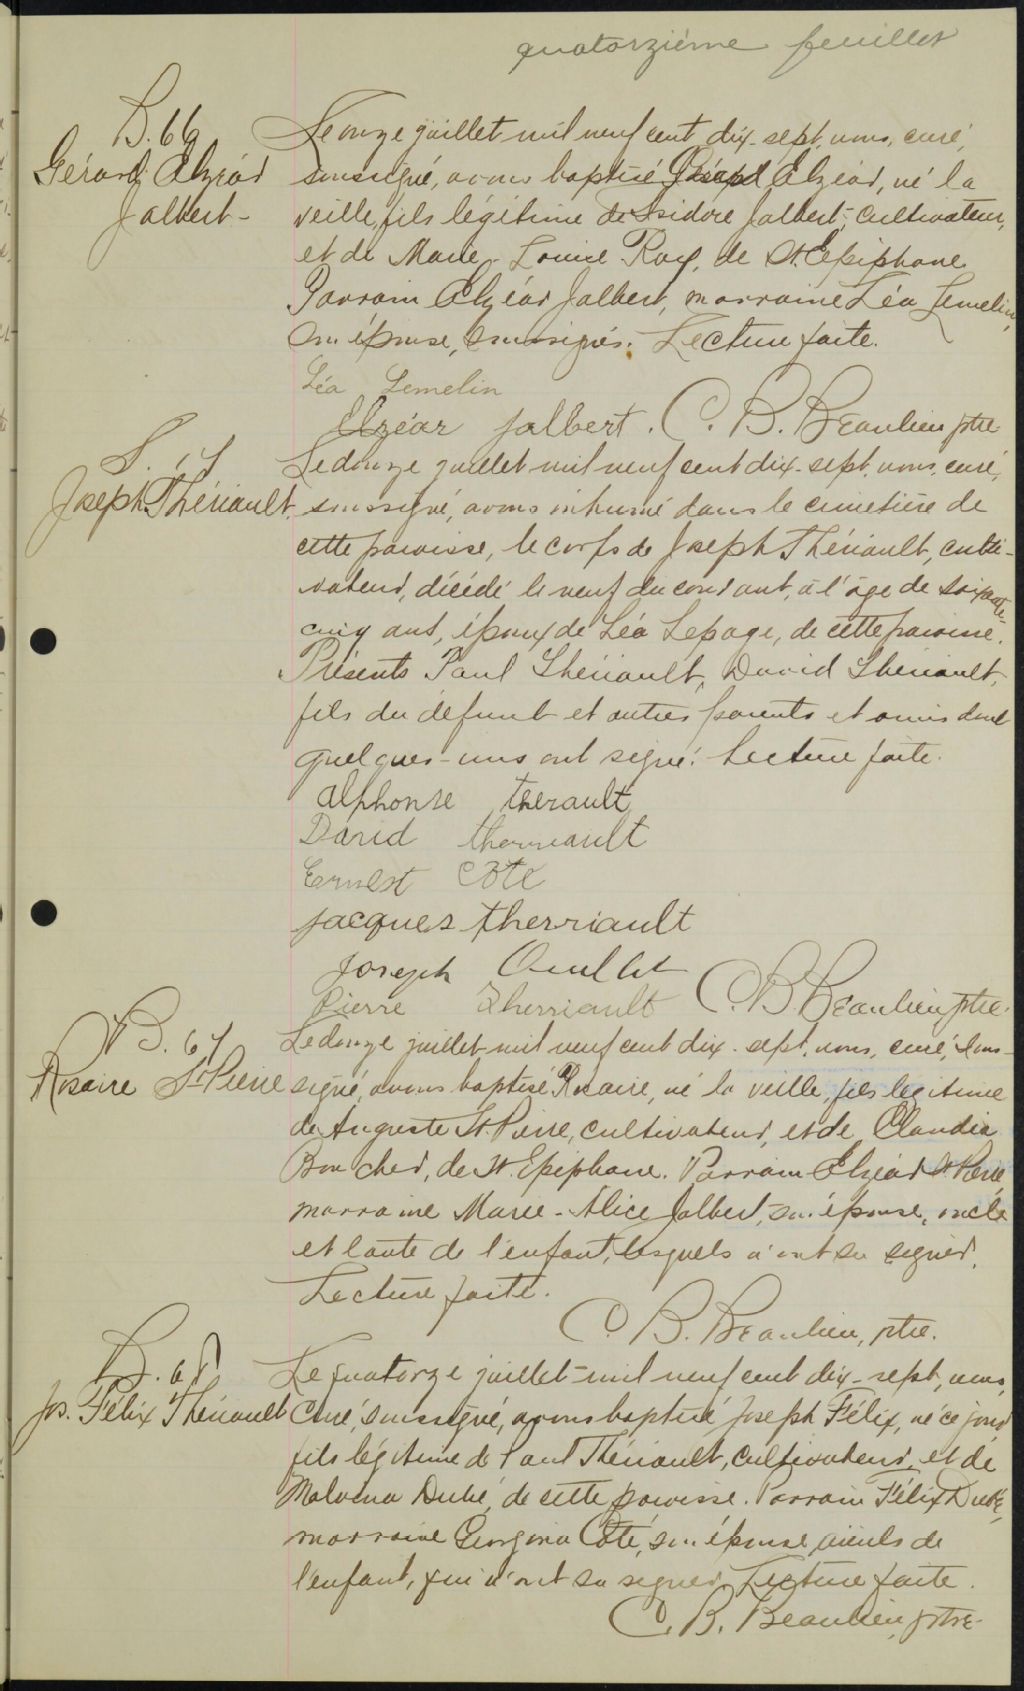 quatorzième feuillet
B. 66
Gérard Elzéar
Jalbert -
Le onze juillet mil neuf cent dix-sept, nous, curé,
soussigné, avons baptisé Gérard Elzéar, né la
veille, fils légitime de Isidore Jalbert, cultivateur,
et de Marie-Louise Roy, de St. Epiphane.
Parrain Elzéar Jalbert, marraine Léa Lemelin,
son épouse, soussignés. Lecture faite.
Léa Lemelin
Elzéar Jalbert. C. B. Beaulieu ptre
S. 17
Joseph Thériault.
Le douze juillet mil neuf cent dix-sept, nous, curé,
soussigné, avons inhumé dans le cimetière de
cette paroisse, le corps de Joseph Thériault, culti-
vateur, décédé le neuf du courant, à l'âge de soixante-
cinq ans, époux de Léa Lepage, de cette paroisse.
Présents Paul Thériault, David Thériault,
fils du défunt et autres parents et amis dont
quelques-uns ont signé. Lecture faite.
alphonse therault
David therriault
Ernest Côté
jacques therriault
Joseph Ouellet
Pierre Therriault C. B. Beaulieu ptre.
B. 67
Rosaire St-Pierre
Le douze juillet mil neuf cent dix-sept, nous, curé, sous-
signé, avons baptisé Rosaire, né la veille, fils légitime
de Auguste St. Pierre, cultivateur, et de Claudia
Boucher, de St. Epiphane. Parrain Elzéar St. Pierre,
marraine Marie-Alice Jalbert, son épouse, oncle
et tante de l'enfant, lesquels n'ont su signer.
Lecture faite.
C. B. Beaulieu, ptre.
B. 68
Jos. Félix Thériault
Le quatorze juillet mil neuf cent dix-sept, nous,
curé, soussigné, avons baptisé Joseph Félix, né ce jour
fils légitime de Paul Thériault, cultivateur, et de
Malvina Dubé, de cette paroisse. Parrain Félix Dubé,
marraine Georgina Côté, son épouse, aïeuls de
l'enfant, qui n'ont su signer. Lecture faite.
C. B. Beaulieu, ptre.